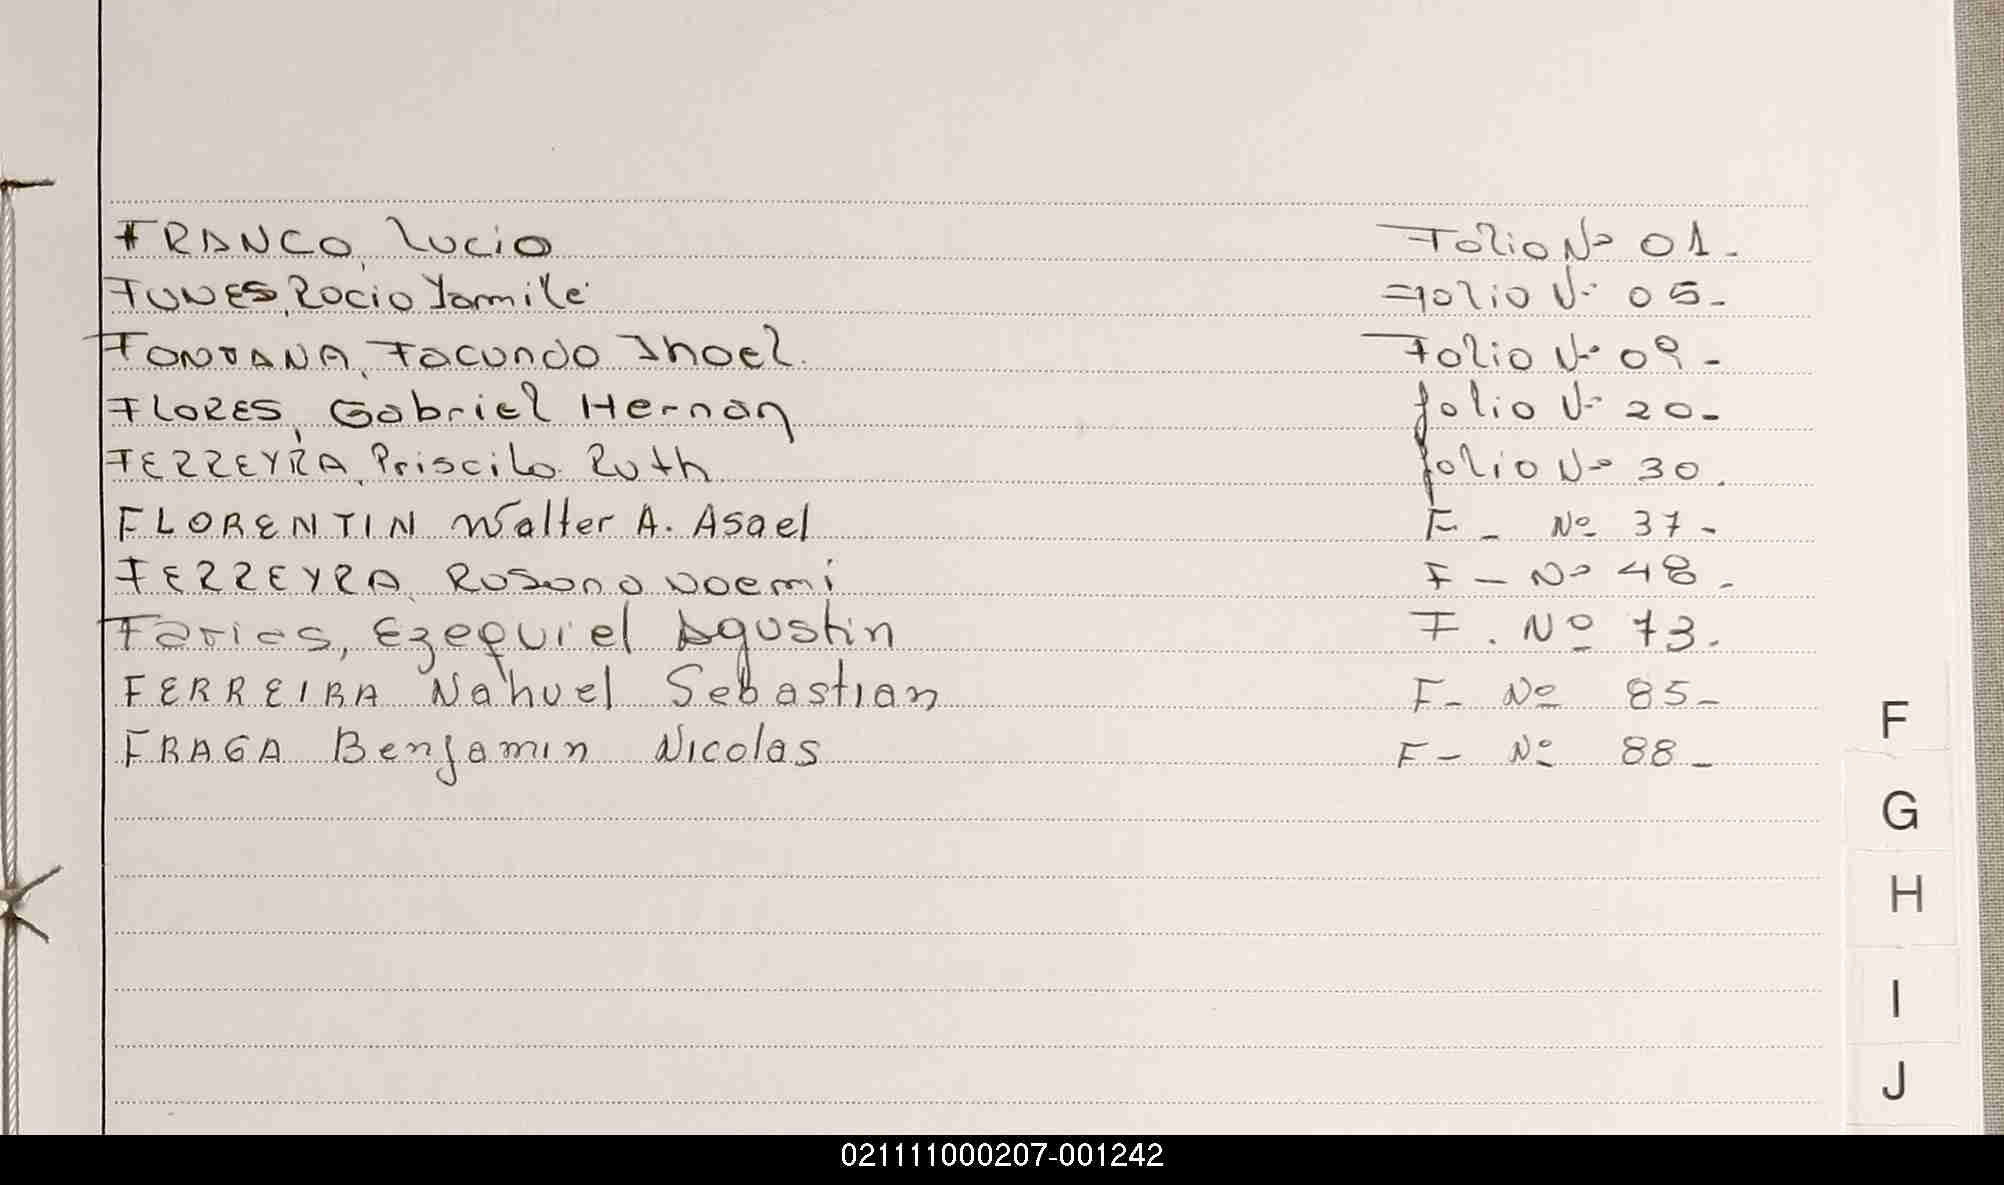 FRANCO, Lucio Folio Nº 01.-
FUNES, Rocio Yamile Folio Nº 05.-
FONTANA, Facundo Jhoel. Folio Nº 09.-
FLORES, Gabriel Hernan folio Nº 20.-
FERREYRA, Priscila Ruth folio Nº 30.
FLORENTIN Walter A. Asael F - Nº 37.-
FERREYRA, Rosana Noemi F - Nº 48.-
Farias, Ezequiel Agustin F. Nº 73.
FERREIRA Nahuel Sebastian F - Nº 85-
FRAGA Benjamin Nicolas F - Nº 88-
F
G
H
I
J
021111000207-001242